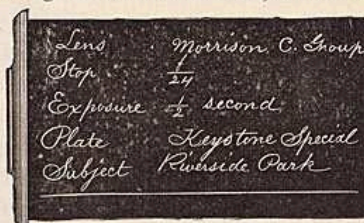 Lens Morrison, C. Group
Stop f/24
Exposure 1/2 second
Plate Keystone Special
Subject Riverside Park